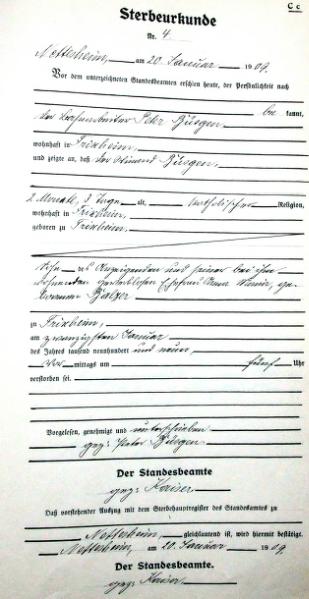 C c
Sterbeurkunde
Nr. 4
Nettesheim, am 20. Januar 1909.
Vor dem unterzeichneten Standesbeamten erschien heute, der Persönlichkeit nach
be kannt,
der Peter Büsgen,
wohnhaft in Frixheim,
und zeigte an, daß Büsgen,
2 Monate, 8 Tage alt, katholischer Religion,
wohnhaft in Frixheim,
geboren zu Frixheim,
Sohn des Anzeigenden und seiner bei ihm
wohnenden Ehefrau Anna ge-
borenen
zu Frixheim,
am zwanzigsten Januar
des Jahres tausend neunhundert und neun,
Vor mittags um fünf Uhr
verstorben sei.
Vorgelesen, genehmigt und unterschrieben
gez: Peter Büsgen
Der Standesbeamte
gez: Kaiser
Daß vorstehender Auszug mit dem Sterbehauptregister des Standesamtes zu
Nettesheim, gleichlautend ist, wird hiermit bestätigt.
Nettesheim, am 20. Januar 1909.
Der Standesbeamte.
gez: Kaiser